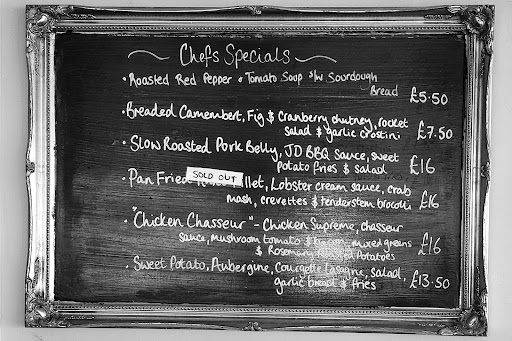 Chefs Specials
• Roasted Red Pepper & Tomato Soup s/w Sourdough
Bread £5.50
• Breaded Camembert, Fig $ Cranberry chutney, rocket
salad $ garlic crostini £7.50
• Slow Roasted Pork Belly, JD BBQ Sauce, sweet
potato fries $ salad £16
SOLD OUT
• Pan Fried Lobster cream sauce, crab
mash, crevettes $ tenderstem brocolli £16
• "Chicken Chasseur" - Chicken Supreme, chasseur
sauce, mushroom tomato $ mixed greens £16
$ Rosemary Potatoes
• Sweet Potato, Aubergine, Courgette Lasagne, salad,
garlic bread $ fries £13.50